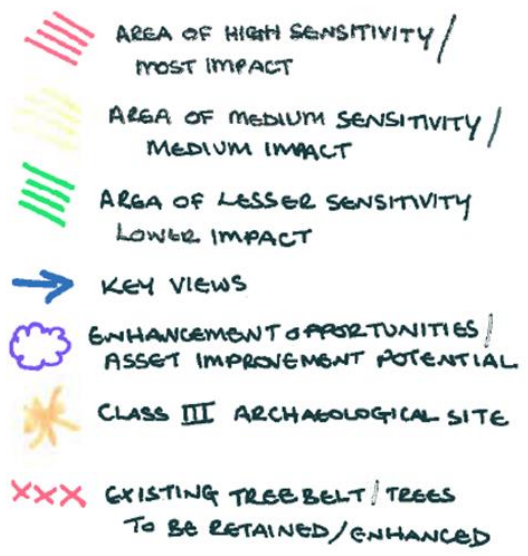 AREA OF HIGH SENSITIVITY/
MOST IMPACT
AREA OF MEDIUM SENSITIVITY/
MEDIUM IMPACT
AREA OF LESSER SENSITIVITY
LOWER IMPACT
KEY VIEWS
ENHANCEMENT OPPORTUNITIES/
ASSET IMPROVEMENT POTENTIAL
CLASS III ARCHAEOLOGICAL SITE
EXISTING TREE BELT/TREES
TO BE RETAINED/ENHANCED